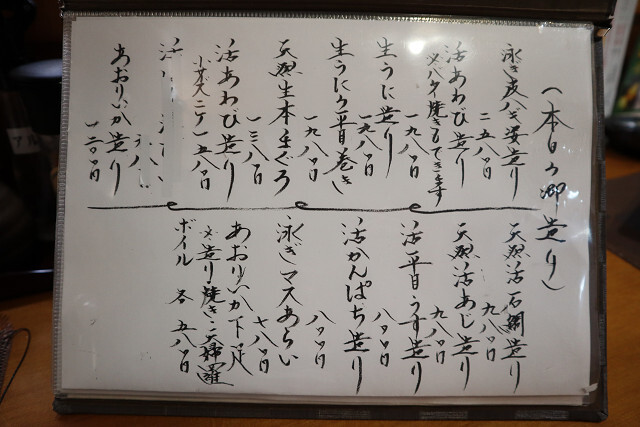 (本日の御造り)
泳ぎ皮ハギ姿造り
二五八〇円
活あわび造り
又バタ焼きもできます
一九八〇円
生うに造り
一九八〇円
生うにの平目巻き
一九八〇円
天然生本まぐろ
一三八〇円
活あわび造り
小サイズ二ケ 一五八〇円
活
あおりいか造り
一二〇〇円
天然活石鯛造り
九八〇円
天然活あじ造り
九八〇円
活平目うす造り
八〇〇円
活かんぱち造り
八〇〇円
泳ぎマスあらい
七八〇円
あおりいか下足
又造り・焼き・天婦羅
ボイル 各 五八〇円